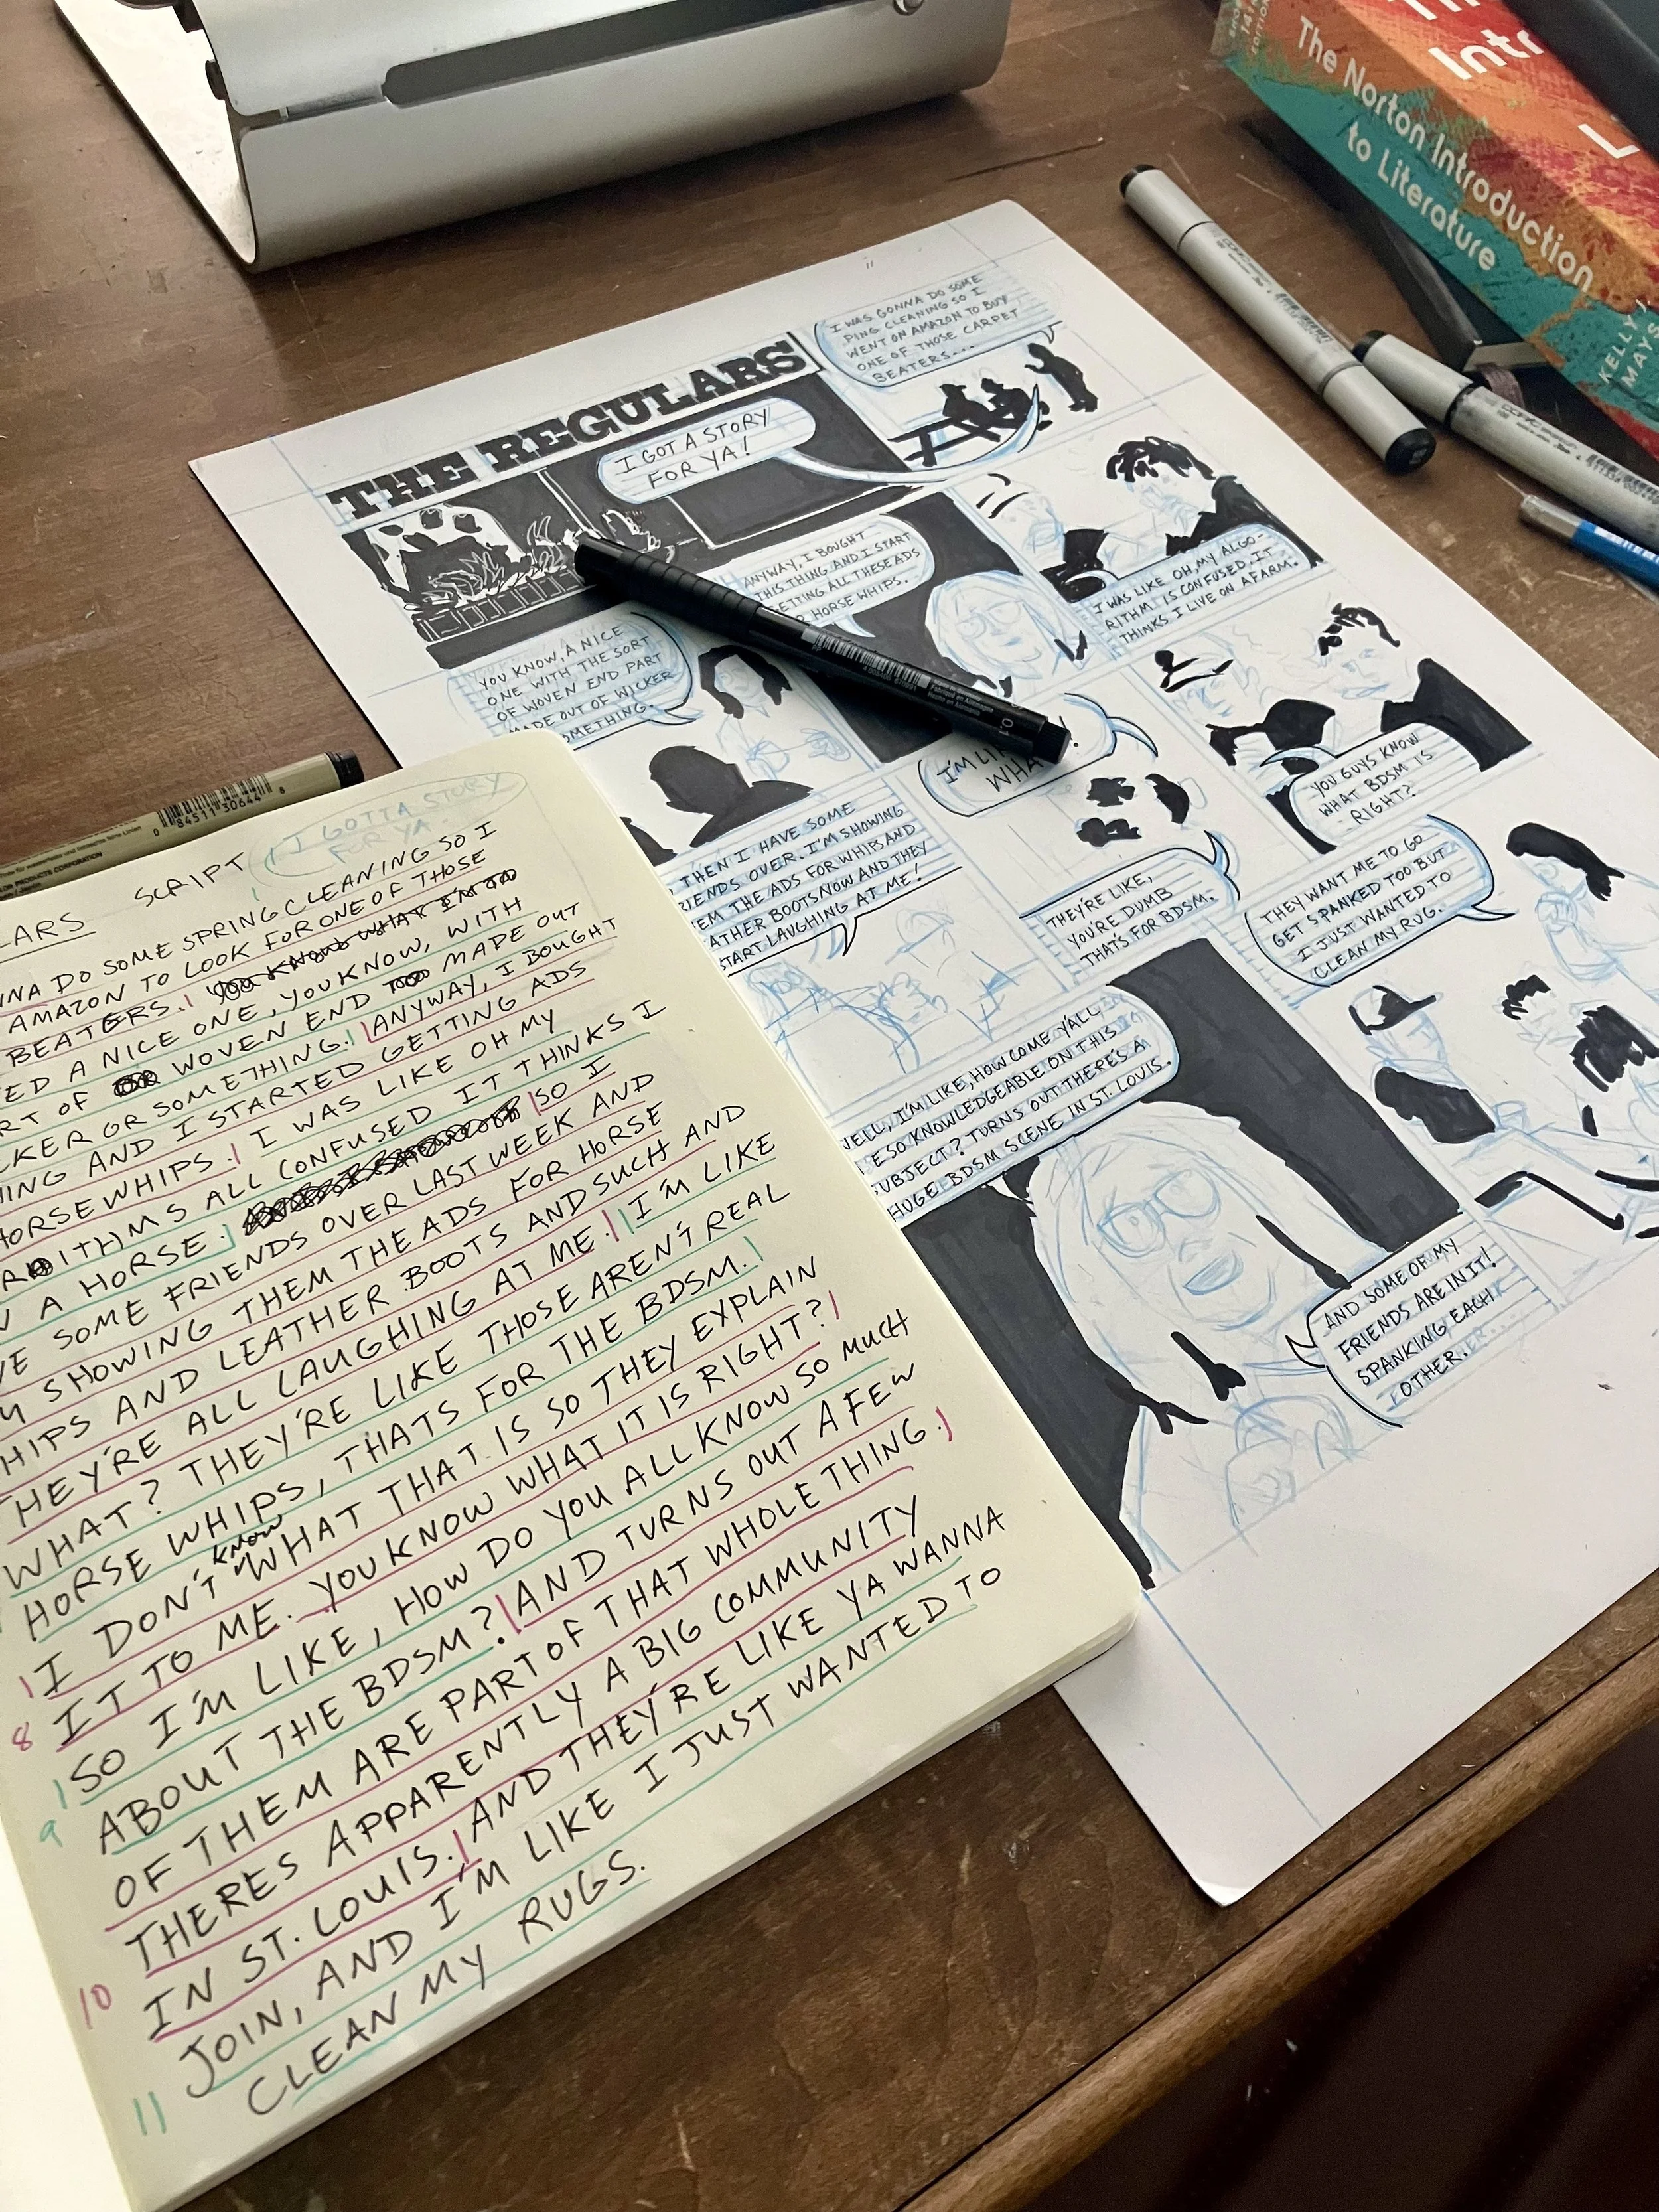 The Norton Introduction
to Literature
KELLY J.
MAYS
THE REGULARS
I GOT A STORY
FOR YA!
I WAS GONNA DO SOME
PING CLEANING SO I
WENT ON AMAZON TO BUY
ONE OF THOSE CARPET
BEATERS...
YOU KNOW, A NICE
ONE WITH THE SORT
OF WOVEN END PART
MADE OUT OF WICKER
SOMETHING.
ANYWAY, I BOUGHT
THIS THING AND I START
GETTING ALL THESE ADS
HORSE WHIPS.
I WAS LIKE OH, MY ALGO-
RITHM IS CONFUSED, IT
THINKS I LIVE ON A FARM.
THEN I HAVE SOME
FRIENDS OVER. I'M SHOWING
THEM THE ADS FOR WHIPS AND
LEATHER BOOTS NOW AND THEY
START LAUGHING AT ME!
I'M LI
WHA
THEY'RE LIKE,
YOU'RE DUMB
THATS FOR BDSM.
YOU GUYS KNOW
WHAT BDSM IS
RIGHT?
WELL, I'M LIKE, HOW COME Y'ALL
E SO KNOWLEDGEABLE ON THIS
SUBJECT? TURNS OUT THERE'S A
HUGE BDSM SCENE IN ST. LOUIS.
THEY WANT ME TO GO
GET SPANKED TOO BUT
I JUST WANTED TO
CLEAN MY RUG.
AND SOME OF MY
FRIENDS ARE IN IT!
SPANKING EACH
OTHER.
0 84511 30644 8
PRODUCTS CORPORATION
I GOTTA STORY
FOR YA
LARS SCRIPT
NNA DO SOME SPRING CLEANING SO I
AMAZON TO LOOK FOR ONE OF THOSE
BEATERS. YOU KNOW WHAT I'M
ED A NICE ONE, YOU KNOW, WITH
RT OF WOVEN END MADE OUT
CKER OR SOMETHING. ANYWAY, I BOUGHT
HING AND I STARTED GETTING ADS
HORSE WHIPS. I WAS LIKE OH MY
RITHMS ALL CONFUSED IT THINKS I
N A HORSE. SO I
VE SOME FRIENDS OVER LAST WEEK AND
M SHOWING THEM THE ADS FOR HORSE
HIPS AND LEATHER BOOTS AND SUCH AND
THEY'RE ALL LAUGHING AT ME. I'M LIKE
WHAT? THEY'RE LIKE THOSE AREN'T REAL
HORSE WHIPS, THATS FOR THE BDSM.
I DON'T KNOW WHAT THAT IS SO THEY EXPLAIN
8 IT TO ME. YOU KNOW WHAT IT IS RIGHT?
SO I'M LIKE, HOW DO YOU ALL KNOW SO MUCH
9 ABOUT THE BDSM? AND TURNS OUT A FEW
OF THEM ARE PART OF THAT WHOLE THING.
THERES APPARENTLY A BIG COMMUNITY
10 IN ST. LOUIS. AND THEY'RE LIKE YA WANNA
JOIN, AND I'M LIKE I JUST WANTED TO
11 CLEAN MY RUGS.